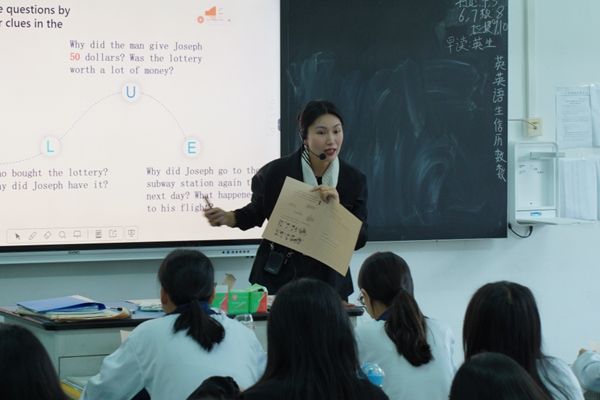 e questions by
r clues in the
Why did the man give Joseph
50 dollars? Was the lottery
worth a lot of money?
L
U
E
ho bought the lottery?
hy did Joseph have it?
Why did Joseph go to the
subway station again t
next day? What happene
to his fligh
早读:英生
英英语生信历数数